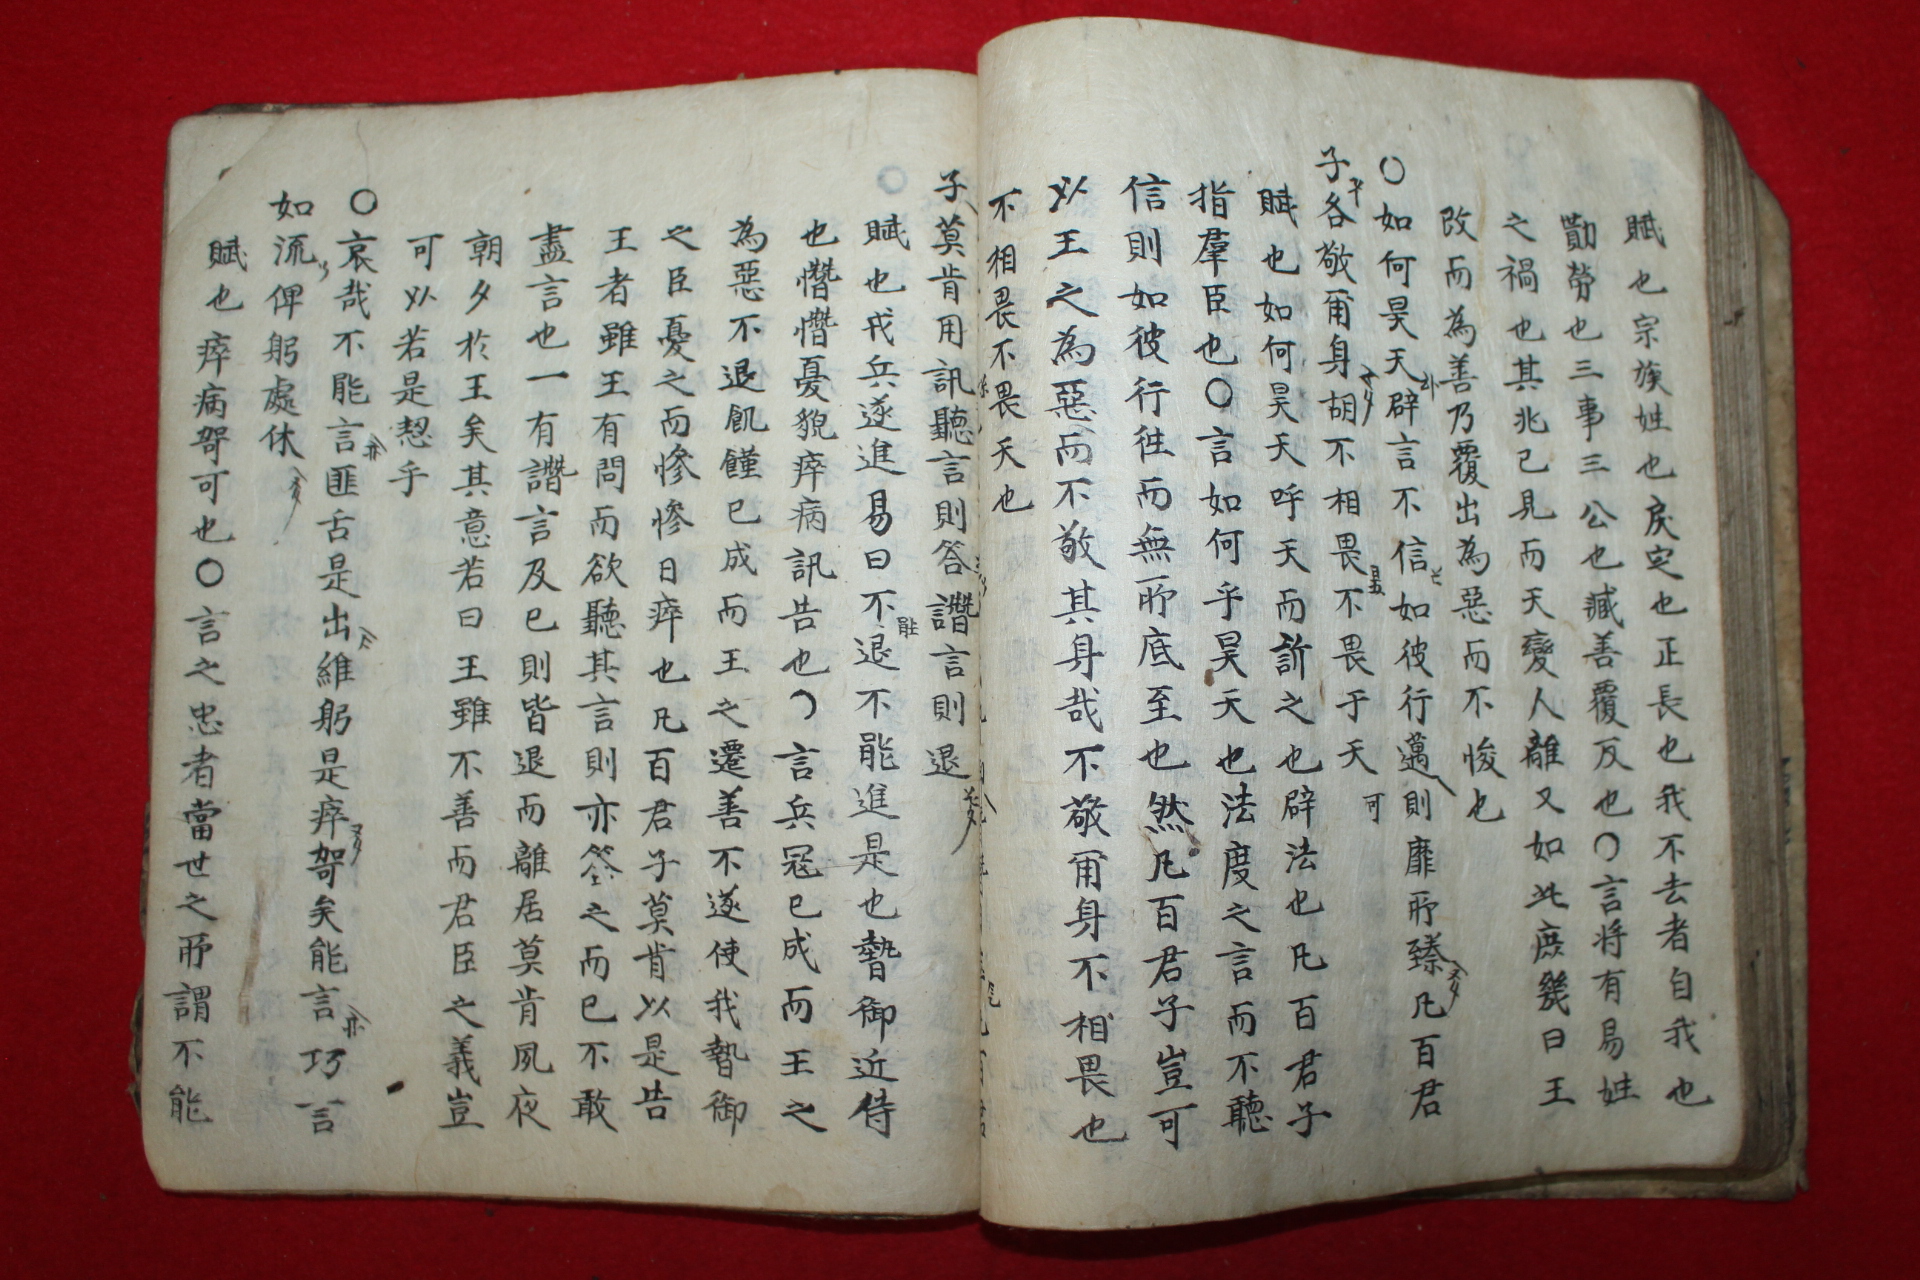 賦也宗族姓也戾定也正長也我不去者自我也
勩勞也三事三公也臧善覆反也〇言将有易姓
之禍也其兆已見而天變人離又如此庶幾曰王
改而為善乃覆出為惡而不悛也
〇如何昊天辟言不信如彼行邁則靡所臻凡百君
子各敬甭身胡不相畏不畏于天
賦也如何昊天呼天而訴之也辟法也凡百君子
指羣臣也〇言如何乎昊天也法度之言而不聽
信則如彼行徃而無所底至也然凡百君子豈可
以王之為惡而不敬其身哉不敬甭身不相畏也
不相畏不畏天也
子莫肯用訊聽言則答譖言則退
賦也戎兵遂進易曰不退不能進是也暬御近侍
也憯憯憂貌瘁病訊告也〇言兵冦已成而王之
為惡不退飢饉已成而王之遷善不遂使我暬御
之臣憂之而慘慘日瘁也凡百君子莫肯以是告
王者雖王有問而欲聽其言則亦答之而已不敢
盡言也一有譖言及已則皆退而離居莫肯夙夜
朝夕於王矣其意若曰王雖不善而君臣之義豈
可以若是恝乎
〇哀哉不能言匪舌是出維躬是瘁哿矣能言巧言
如流俾躬處休
賦也瘁病哿可也〇言之忠者當世之所謂不能